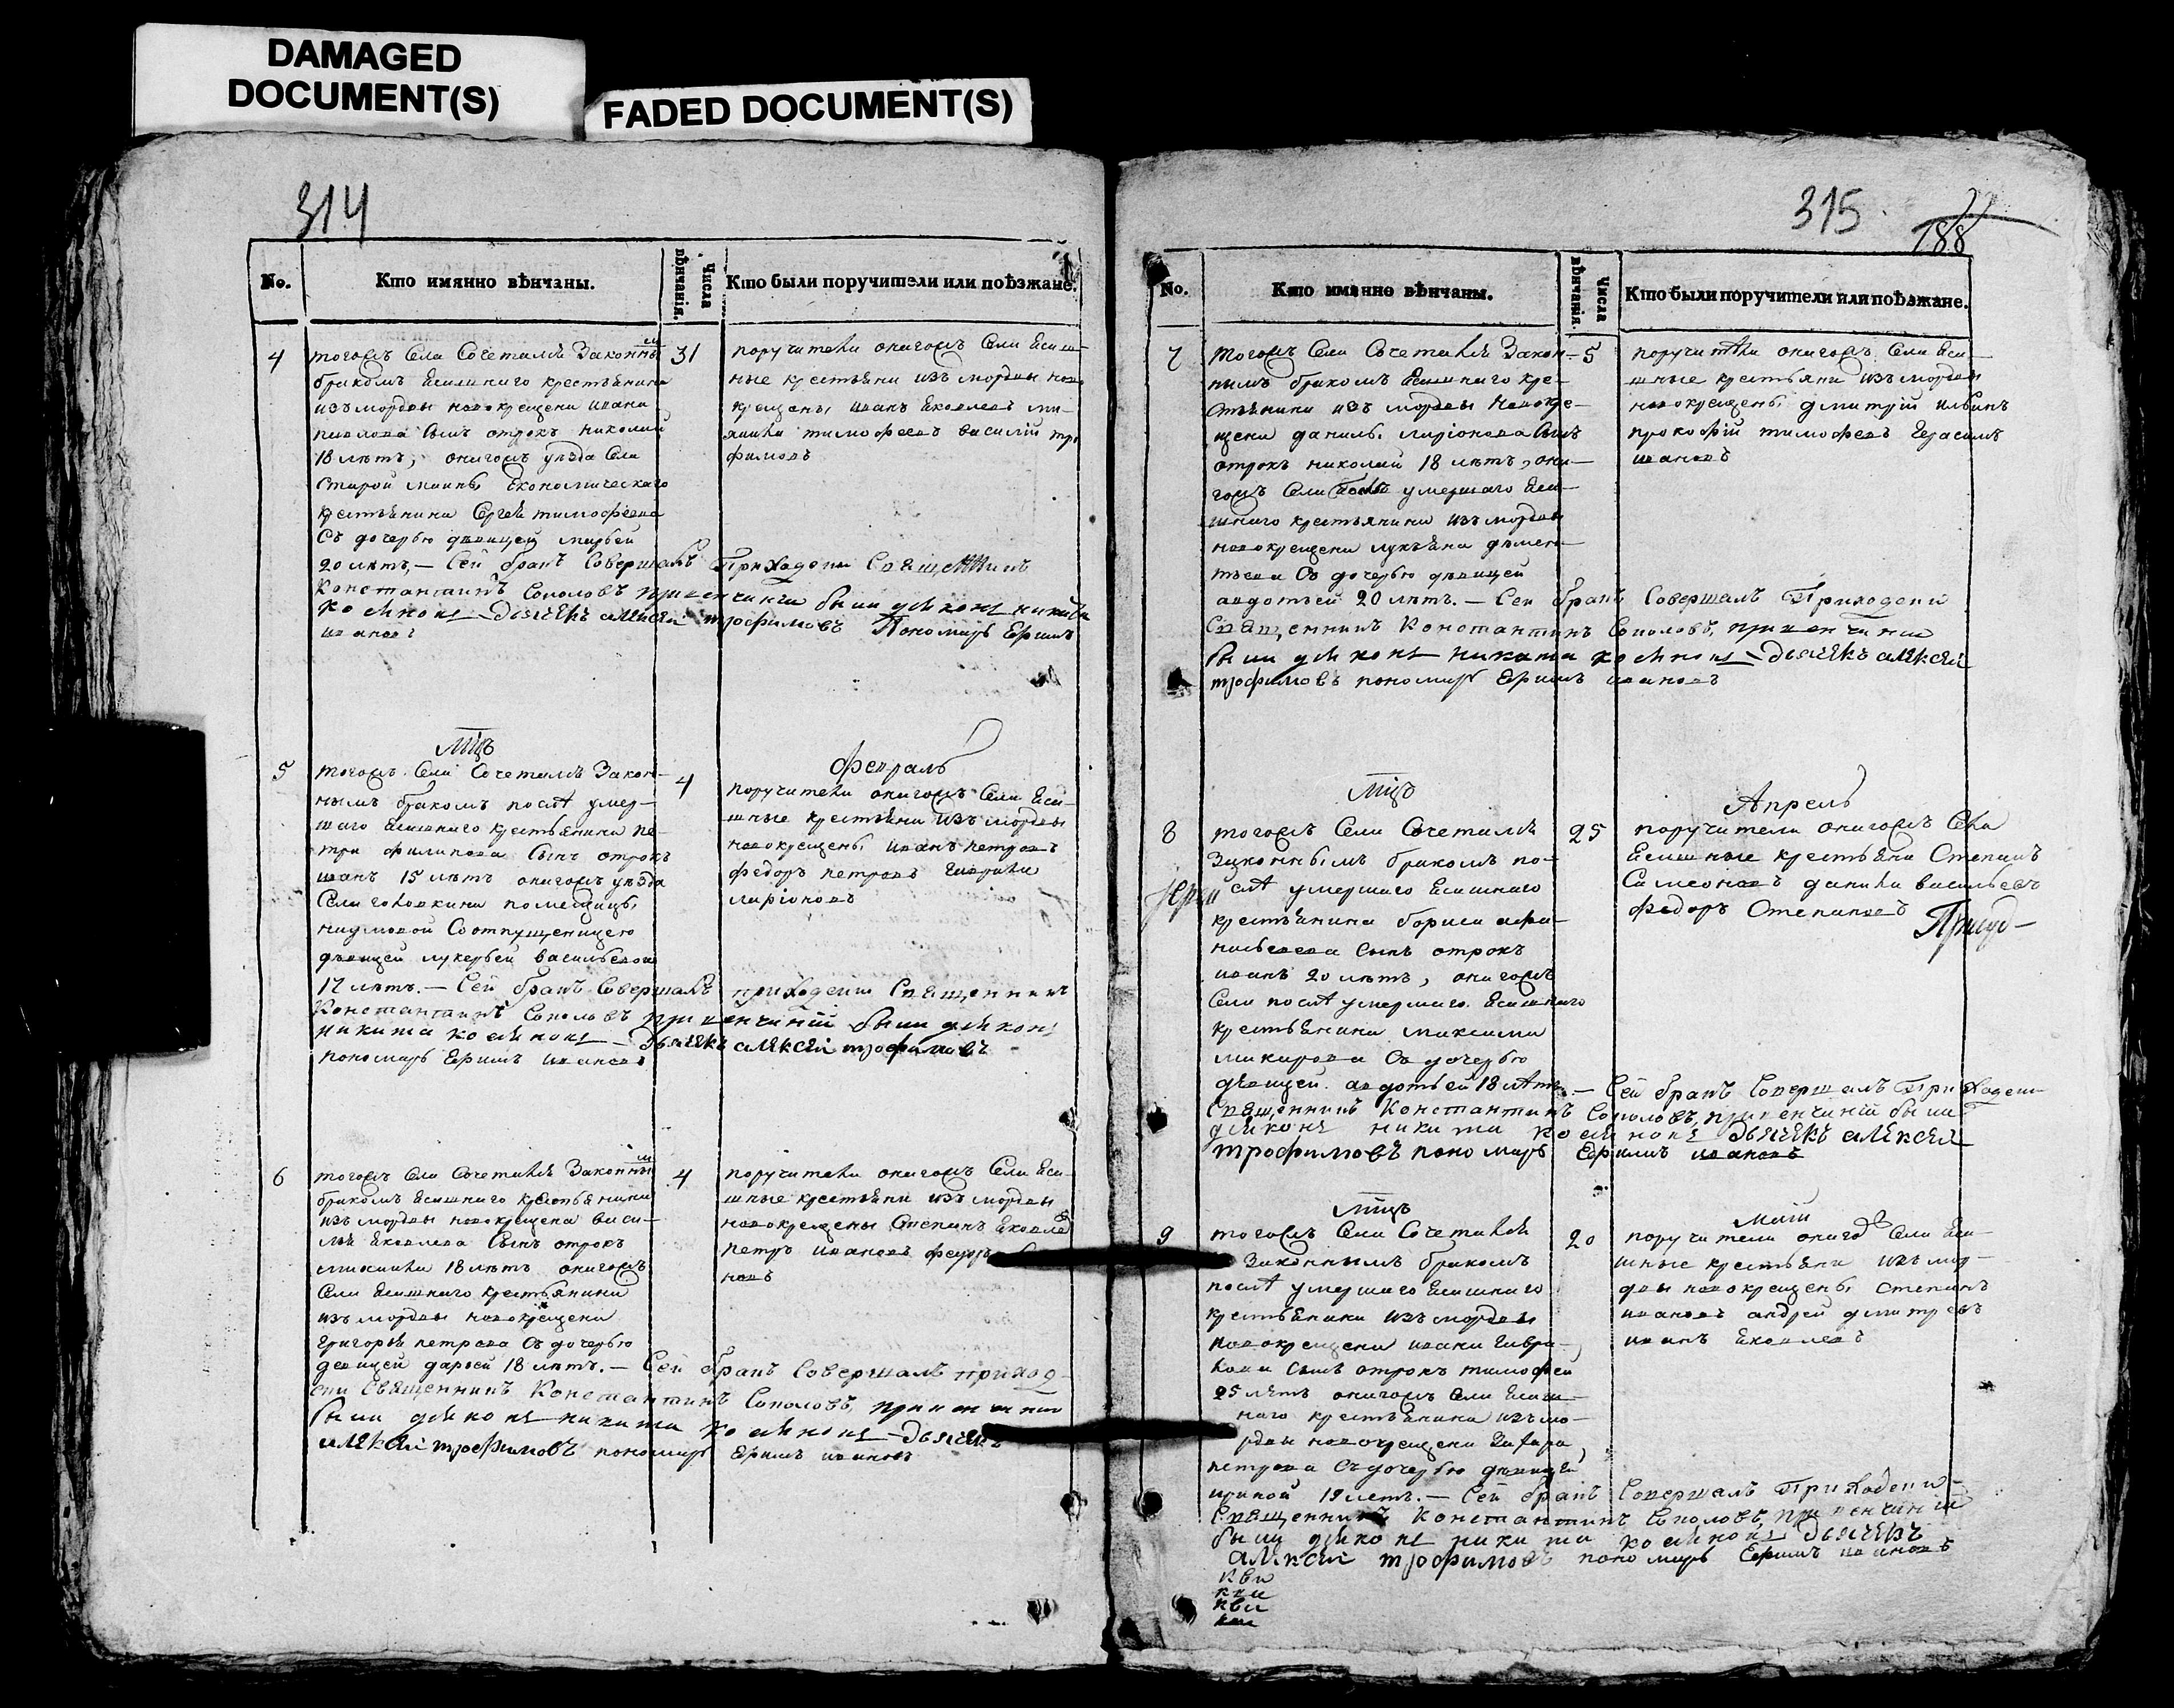 DAMAGED
DOCUMENT(S)
FADED DOCUMENT(S)
314
No.
Кто имянно вѣнчаны.
Числа вѣнчанія.
Кто были поручители или поѣзжане.
4
тогожъ Села Сочетался Законны
бракомъ ясашнаго крестьянина
изъ мордвы новокрещена ивана
павлова Сынъ отрокъ николай
18 лѣтъ, оногожъ уѣзда Села
Старой маины Економическаго
крестьянина Сергея тимофеева
Съ дочерью девицей марьей
20 лѣтъ, — Сей бракъ Совершалъ Приходски Священникъ
Константинъ Соколовъ
были дїаконъ никита
дьячекъ алексей трофимовъ Пономарь Ефимъ
ивановъ
31
поручители оногожъ Села Ясаш-
ные крестьяна изъ мордвы ново
крещены иванъ Яковлевъ ми-
хайла тимофеевъ василій тро
фимовъ
мцъ
февраль
5
тогожъ Села Сочетался Закон-
нымъ бракомъ послѣ умер-
шаго ясашнаго крестьянина пе-
тра филипова Сынъ отрокъ
иванъ 15 лѣтъ оногожъ уѣзда
Села головкина помещицы
наумовой Со отпущеницею
девицей лукерьей васильевой
17 лѣтъ. — Сей бракъ Совершалъ приходски Священникъ
Константинъ Соколовъ при венчаніи были дїаконъ
никита дьячекъ алексей трофимовъ
пономарь Ефимъ ивановъ
4
поручители оногожъ Села Яса-
шные крестьяна изъ мордвы
новокрещены иванъ петровъ
федоръ петровъ Гаврила
ларіоновъ
6
тогожъ Села Сочетался Законны
бракомъ ясашнаго крестьянина
изъ мордвы новокрещена васи-
лья Яковлева Сынъ отрокъ
михаила 18 лѣтъ оногожъ
Села ясашнаго крестьянина
изъ мордвы новокрещена
Григорья петрова Съ дочерью
девицей дарьей 18 лѣтъ. — Сей бракъ Совершалъ приход-
ски Священникъ Константинъ Соколовъ,
были дїаконъ никита дьячекъ
алексей трофимовъ пономарь Ефимъ ивановъ
4
поручители оногожъ Села Яса-
шные крестьяна изъ мордвы
новокрещены Степанъ Яковле
петръ ивановъ
новъ
315
188
No.
Кто имянно вѣнчаны.
Числа вѣнчанія.
Кто были поручители или поѣзжане.
7
тогожъ Села Сочетался Закон-
нымъ бракомъ Ясашнаго кре-
стьянина изъ мордвы Новокре-
щена данилы ларіонова Сынъ
отрокъ николай 18 лѣтъ, оно-
гожъ Села послѣ умершаго Яса-
шнаго крестьянина изъ мордвы
новокрещена лукьяна демен-
тьева Съ дочерью девицей
авдотьей 20 лѣтъ. — Сей бракъ Совершалъ Приходски
Священникъ Константинъ Соколовъ, при венчании
были дїаконъ никита дьячекъ алексей
трофимовъ пономарь Ефимъ ивановъ
5
поручители оногожъ Села Яса-
шные крестьяни изъ мордвы
новокрещены дмитрій ильинъ
прокофій тимофеевъ Герасимъ
ивановъ
мцъ
Апрель
8
тогожъ Села Сочетался
Законнымъ бракомъ по-
слѣ умершаго Ясашнаго
крестьянина бориса афа-
насьевева Сынъ отрокъ
иванъ 20 лѣтъ, оногожъ
Села послѣ умершаго Ясашнаго
крестьянина максима
макарова Съ дочерью
девицей авдотьей 18 лѣтъ. — Сей бракъ Совершалъ Приходски
Священникъ Константинъ Соколовъ, при венчаніи были
дїаконъ никита дьячекъ алексей
трофимовъ пономарь Ефимъ ивановъ
25
поручители оногожъ Села
Ясашные крестьяна Степанъ
Самсоновъ данила васильевъ
федоръ Степановъ
мцъ
маій
9
тогожъ Села Сочетался
Законнымъ бракомъ
послѣ умершаго Ясашнаго
крестьянина изъ мордвы
новокрещена ивана Гаври-
лова Сынъ отрокъ тимофей
25 лѣтъ оногожъ Села Ясаш-
наго крестьянина изъ мо-
рдвы новокрещена Захара
петрова Съ дочерью девицей
ириной 19 летъ. — Сей бракъ Совершалъ Приходски
Священникъ Константинъ Соколовъ, при венчаніи
были дїаконъ никита дьячекъ
алексей трофимовъ пономарь Ефимъ ивановъ
20
поручители оного Села Яса-
шные крестьяна изъ мор-
двы новокрещены Степанъ
ивановъ андрей дмитревъ
иванъ Яковлевъ